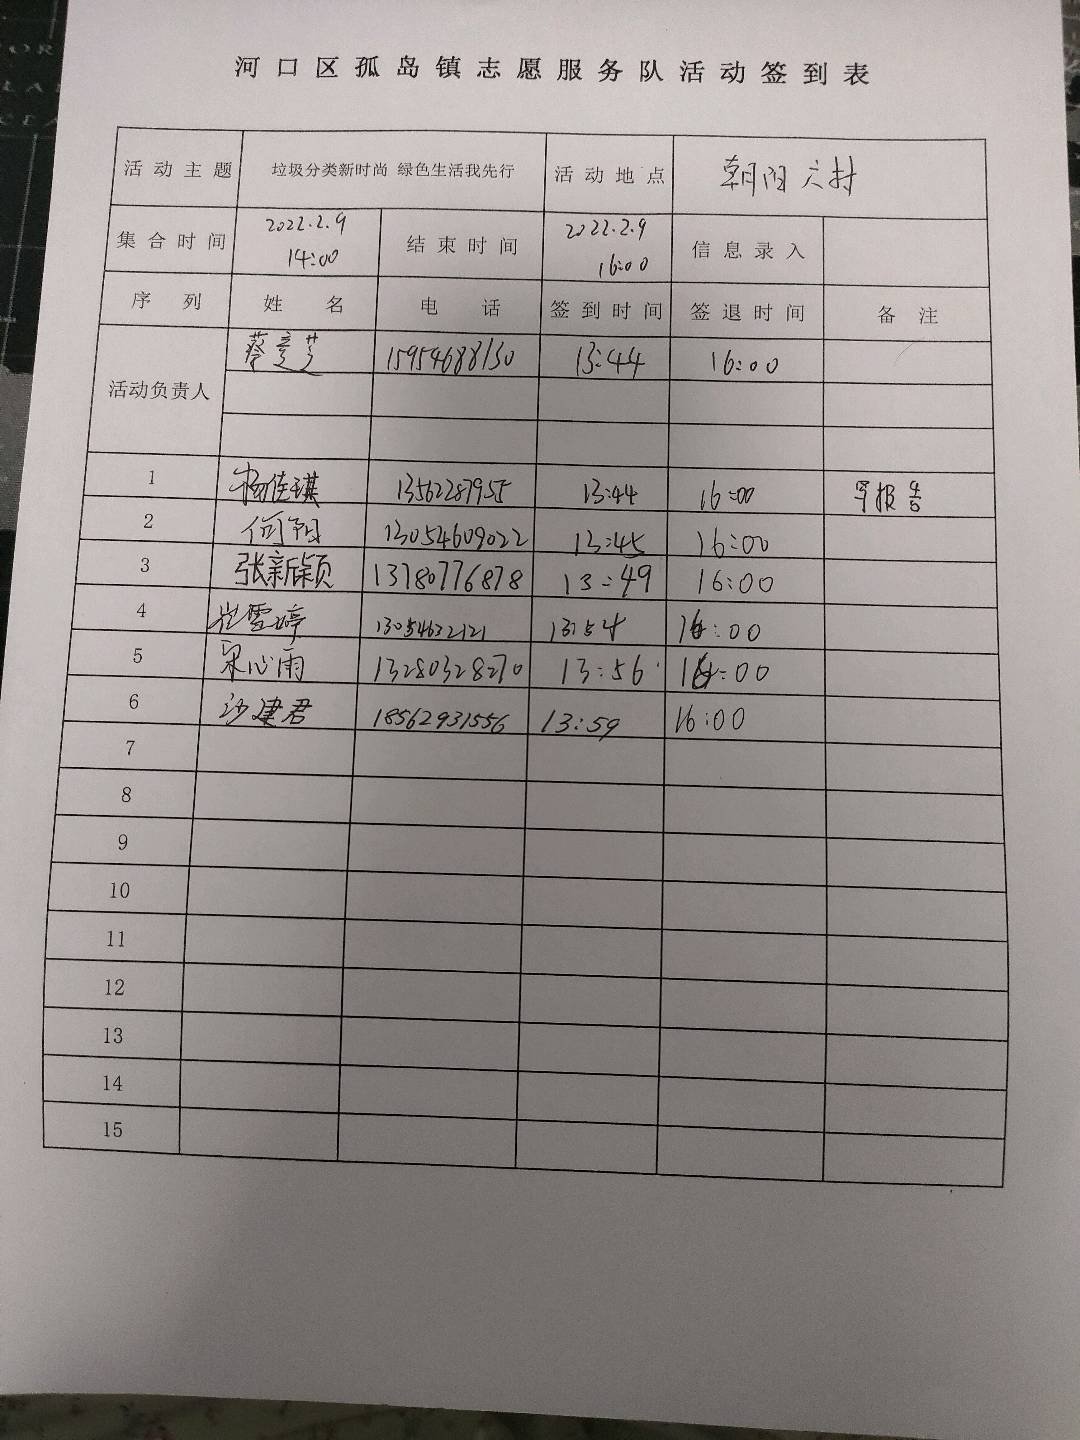 河口区孤岛镇志愿服务队活动签到表
活动主题 垃圾分类新时尚 绿色生活我先行 活动地点 朝阳六村
集合时间 2022.2.9 14:00 结束时间 2022.2.9 16:00 信息录入
序列 姓名 电话 签到时间 签退时间 备注
活动负责人 蔡 15954688130 13:44 16:00
1 杨佳琪 13562287955 13:44 16:00 写报告
2 何阳 13054609022 13:45 16:00
3 张新颖 13780776878 13:49 16:00
4 崔雪婷 13054632121 13:54 16:00
5 宋心雨 13280328270 13:56 16:00
6 沙建君 18562931556 13:59 16:00
7
8
9
10
11
12
13
14
15